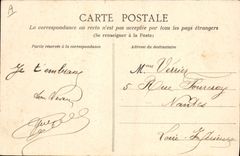 CARTE POSTALE
La correspondance au recto n'est pas acceptée par tous les pays étrangers
(Se renseigner à la Poste)
Partie réservée à la correspondance
Adresse du destinataire
Je t'embrasse
Mme Verrier
5 Rue Fourcroy
Nantes
Loire Inférieure